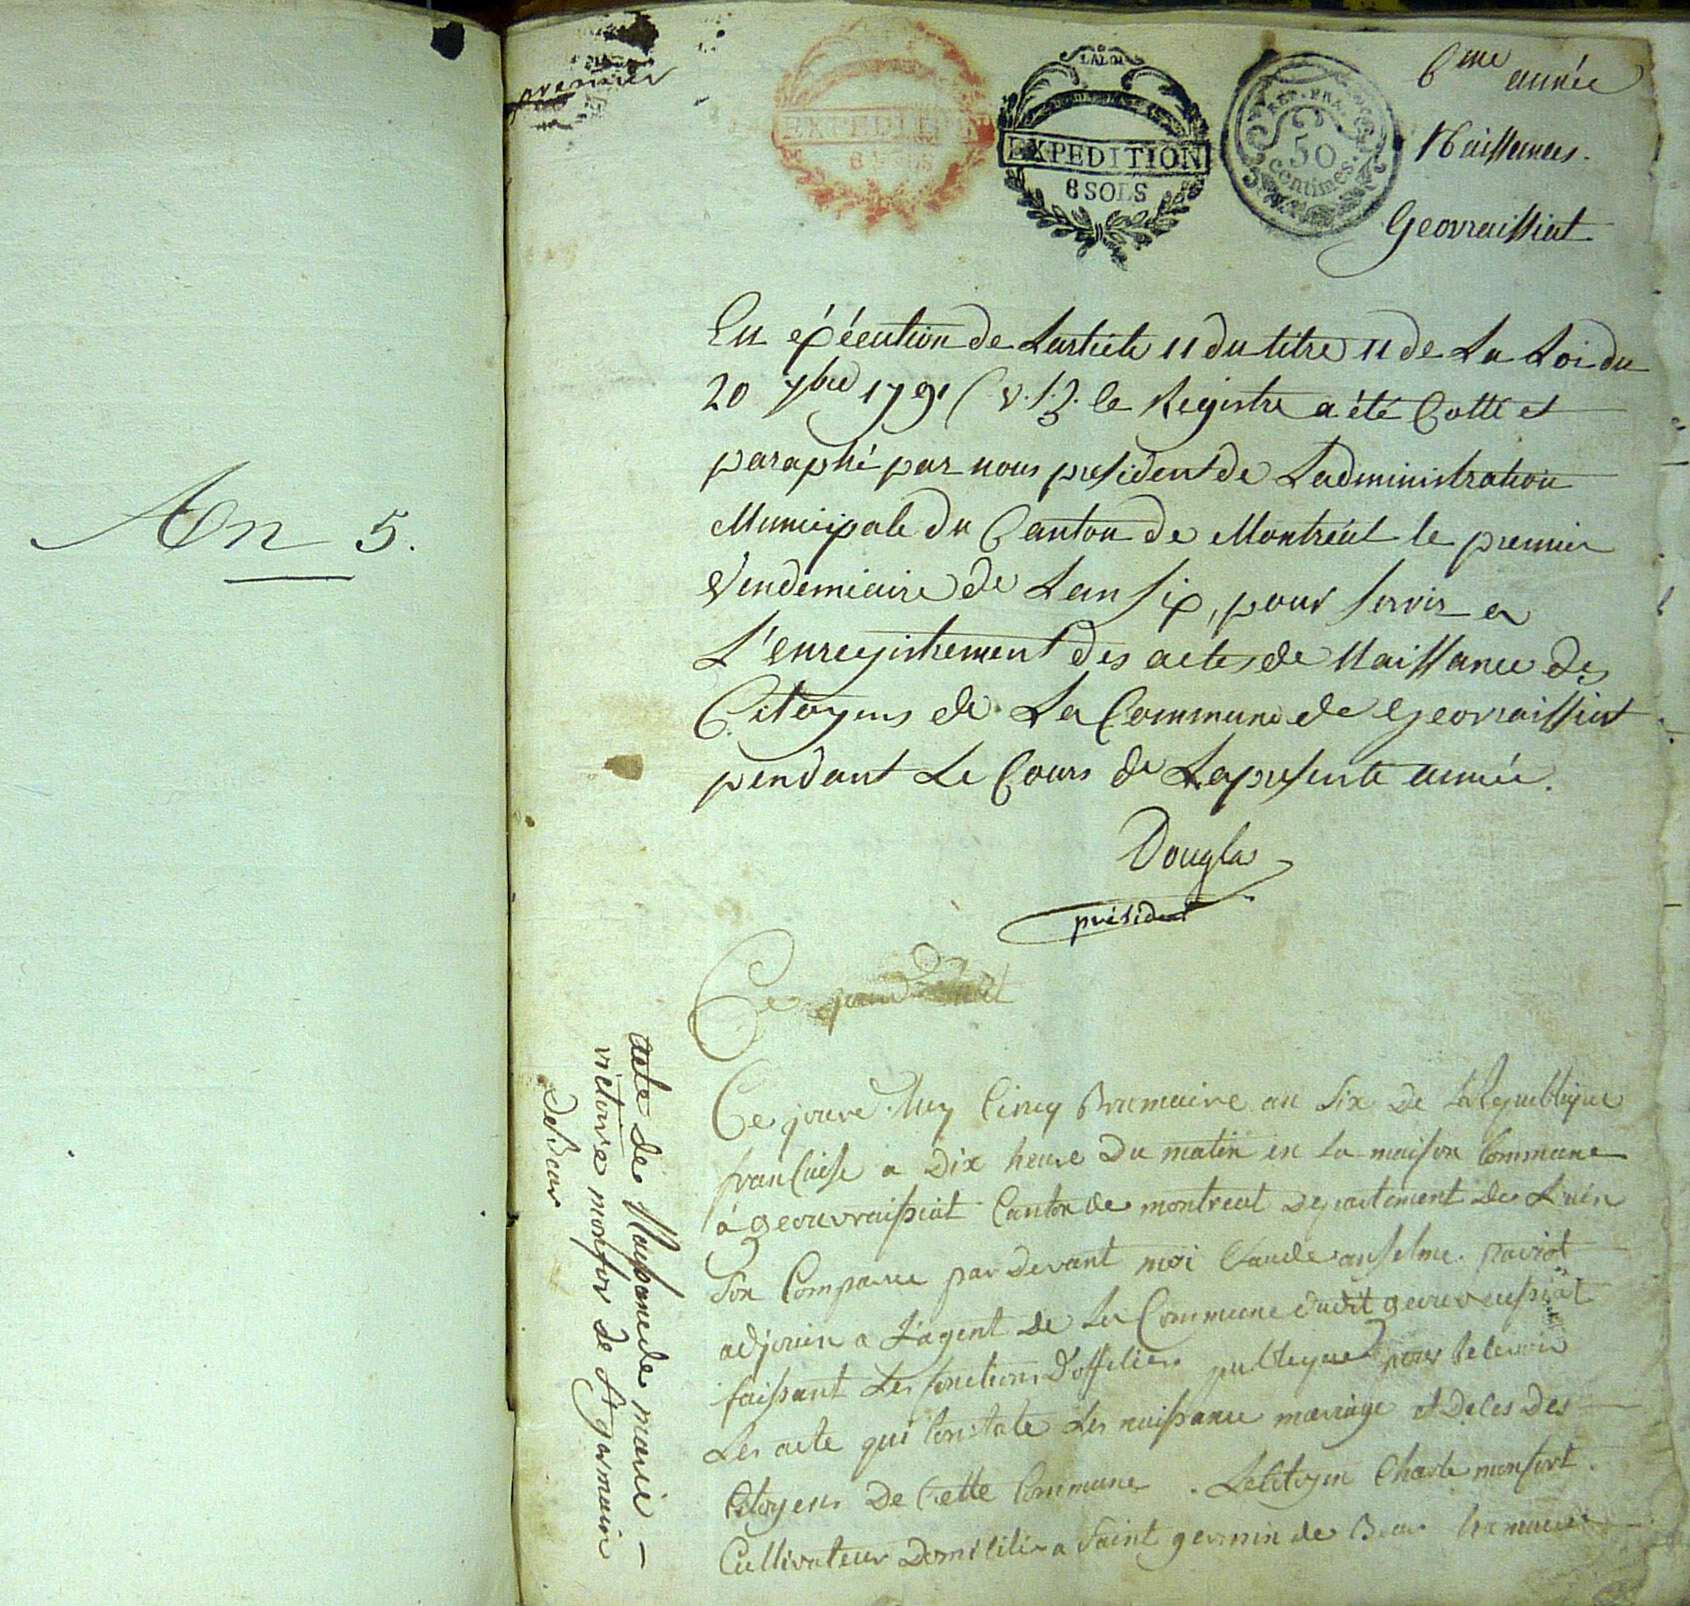 An 5.
premier
EXPEDITION
8 SOLS
LA LOI
EXPEDITION
8 SOLS
REP. FRA.
50
centimes.
6me année
Naissances.
Geovraissiat
En éxécution de Larticle 11 du titre 11 de La Loi du
20 7bre 1791 (v. s.). le Registre a été Cotté et
paraphé par nous president de Ladministration
Municipale du Canton de Montréal le premier
Vendemiaire de Lan Six, pour servir a
L'enregistrement des actes de Naissance des
Citoyens de La Commune de Geovraissiat
pendant Le Cours de Lapresente année.
Douglas
président
Ce
acte de Naissance de marie -
victoire monfor de St germain
de Bear
Ce jourd'huy Cinq Brumaire an Six De La Republique
francaise a Dix heure Du matin en La maison Commune
à geouvraissiat Canton de montreal Departement de L'ain
Son Comparu par Devant moi Claude anselme paviot
adjouin a L'agent De La Commune dudit geouvraissiat
faissant Les fonctions D'officier publique pour Recevoir
Les acte qui Constate Les naissance mariage et Deces Des
Citoyens De Cette Commune. Le Citoyen Charle monfort
Cultivateur Domicilier a Saint germin de Bear